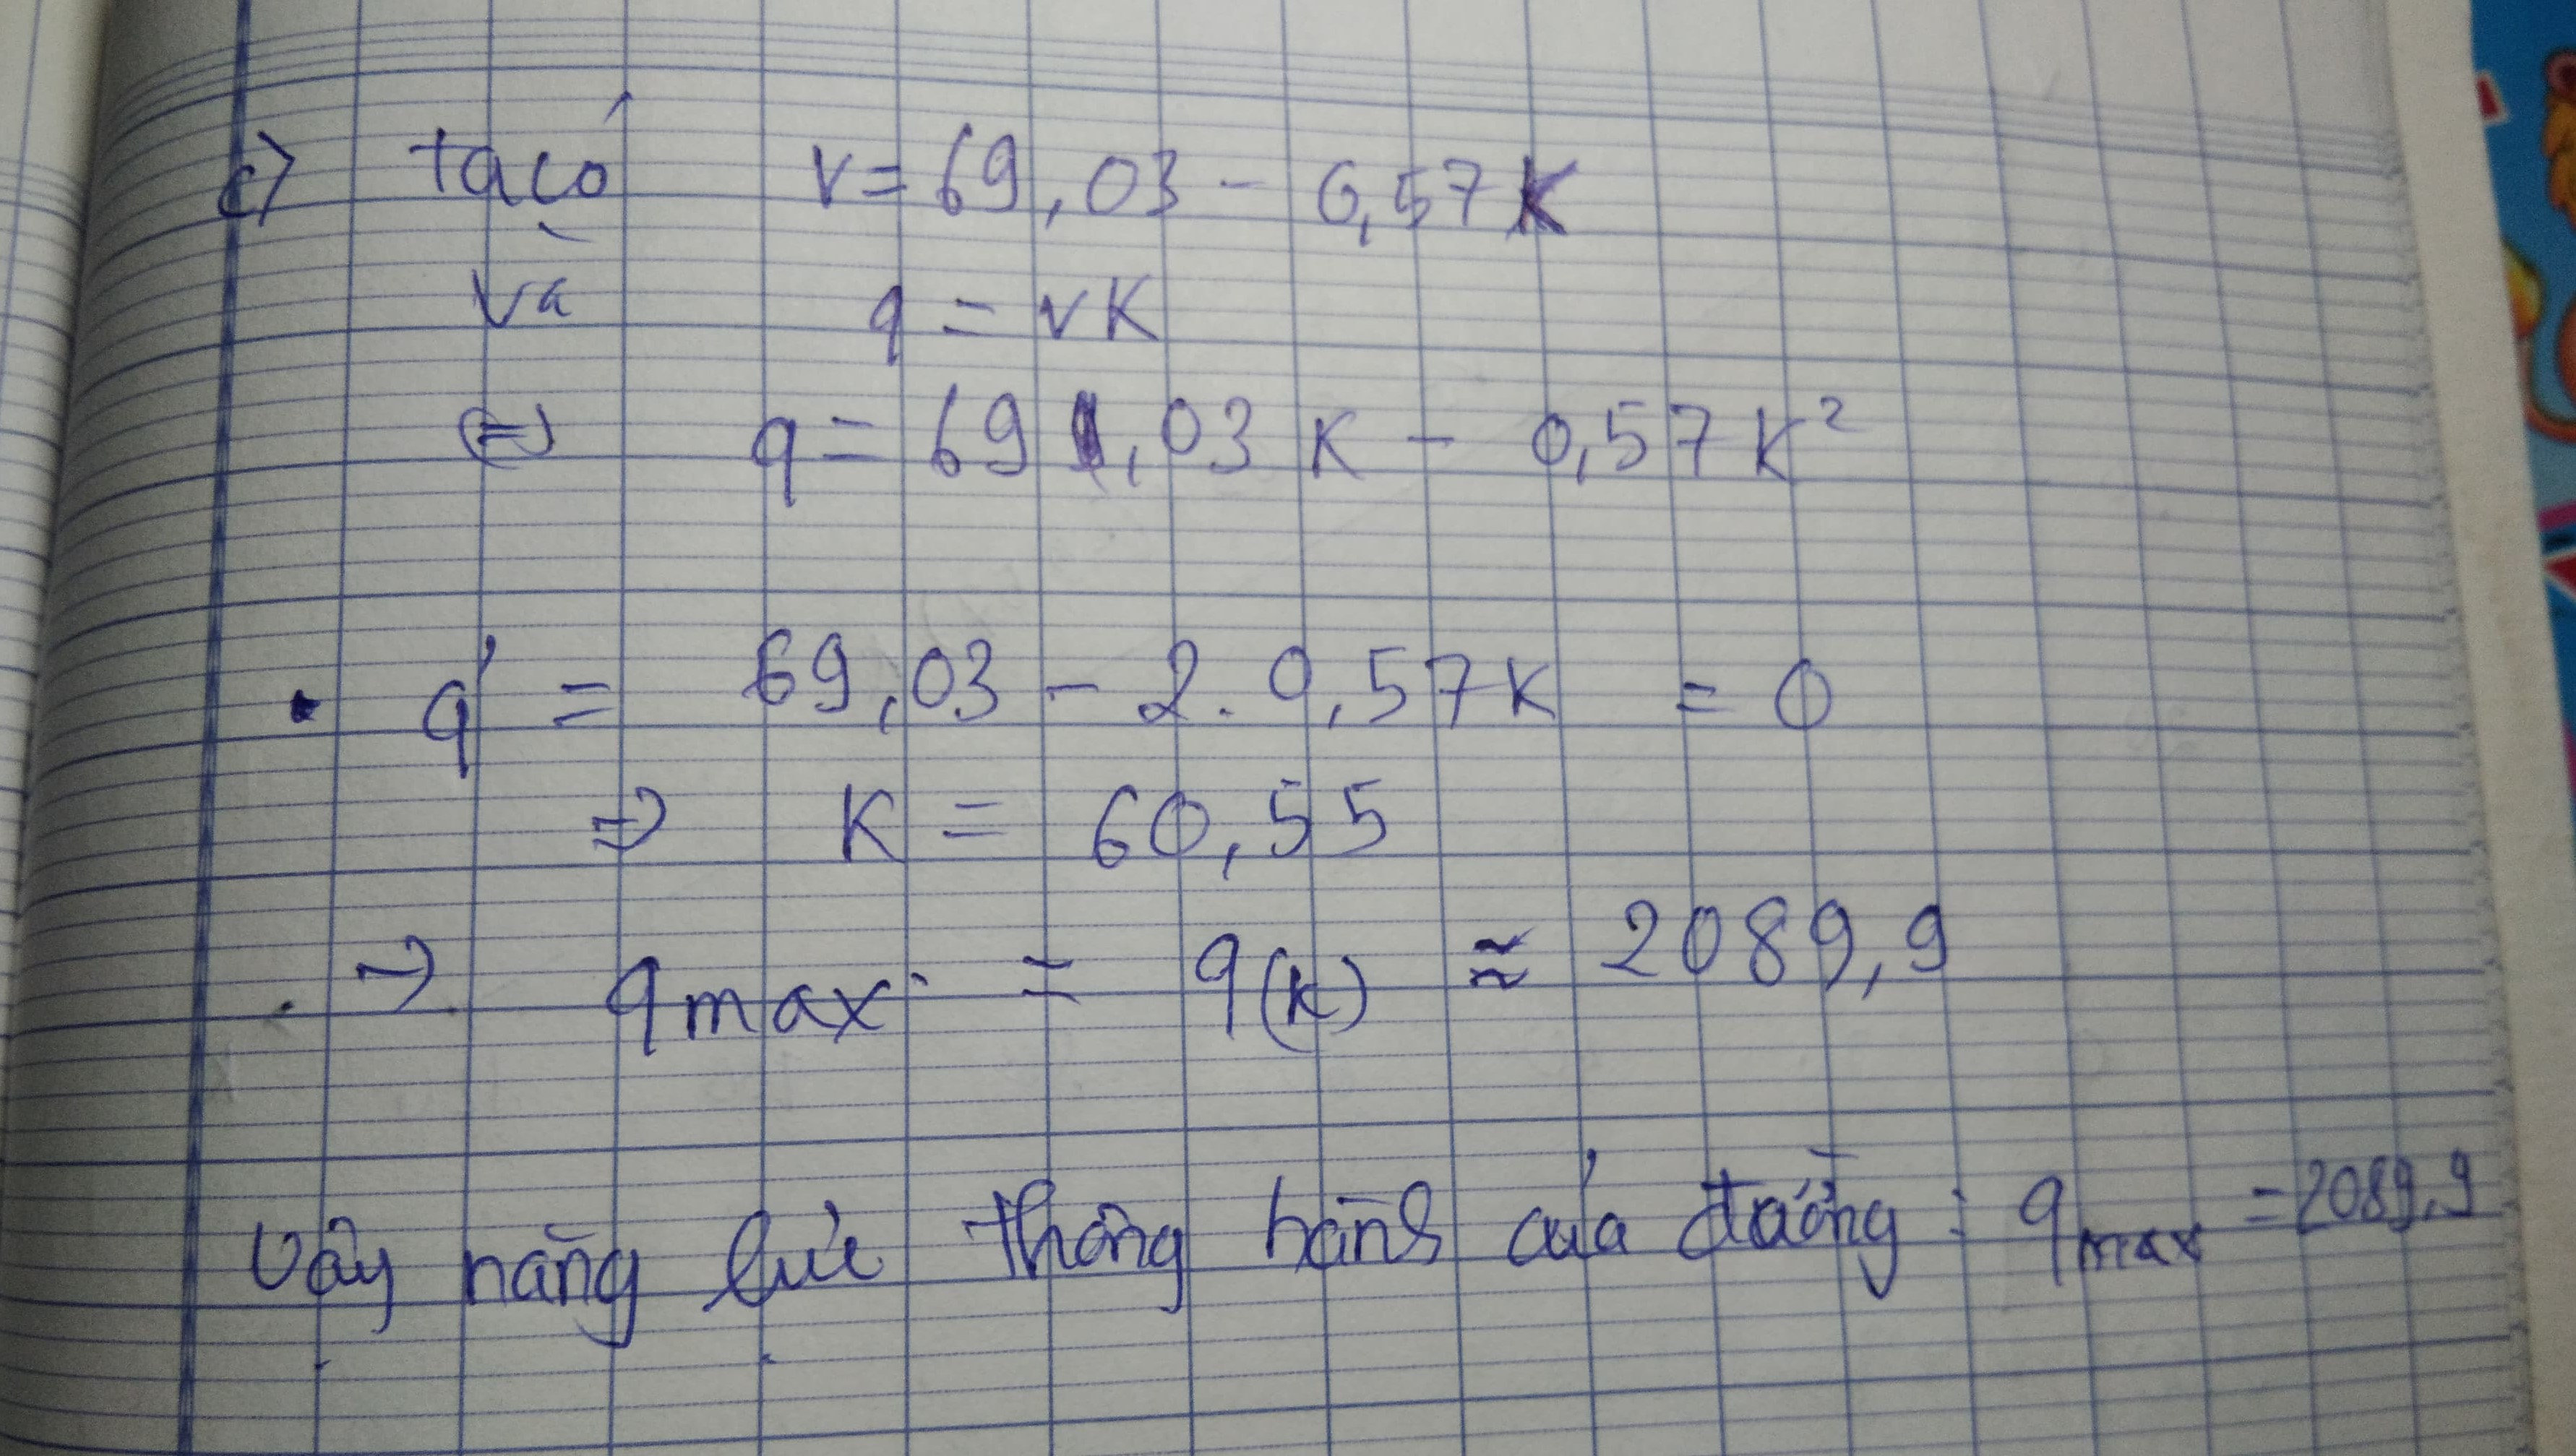 c) ta có v = 69,03 - 0,57K
và q = vK
⇔ q = 69,03 K - 0,57 K²
• q' = 69,03 - 2. 0,57K = 0
⇒ K = 60,55
→ qmax = q(K) ≈ 2089,9
Vậy năng lực thông hành của đường : qmax = 2089,9